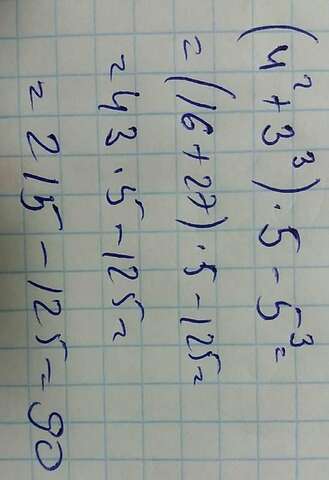 (4² + 3³) · 5 - 5³ =
= (16 + 27) · 5 - 125 =
= 43 · 5 - 125 =
= 215 - 125 = 90